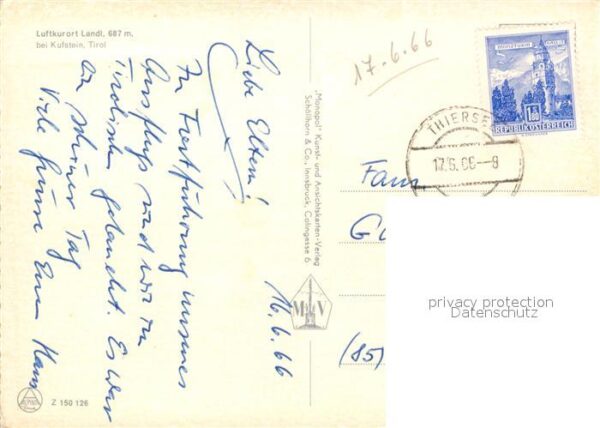 Luftkurort Landl, 687 m,
bei Kufstein, Tirol
Liebe Eltern!
In Fortführung unseres
Ausflugs sind wir in
Tirolischen gelandet. Es war
ein schöner Tag
Viele Grüsse Euer Hans
16.6.66
„Monopol" Kunst- und Ansichtskarten-Verlag
Schöllhorn & Co., Innsbruck, Colingasse 6
M V
17.6.66
1.80
REPUBLIK ÖSTERREICH
THIERSE
17.6.66-8
Fam
(85)
privacy protection
Datenschutz
Z 150 126